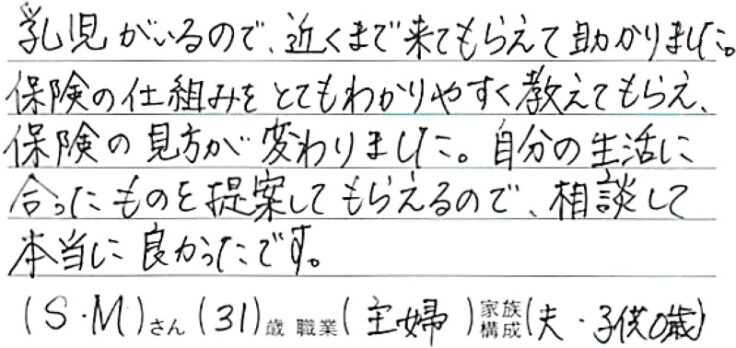 乳児がいるので、近くまで来てもらえて助かりました。
保険の仕組みをとてもわかりやすく教えてもらえ、
保険の見方が変わりました。自分の生活に
合ったものを提案してもらえるので、相談して
本当に良かったです。
(S・M)さん(31)歳 職業(主婦)家族構成(夫・子供0歳)